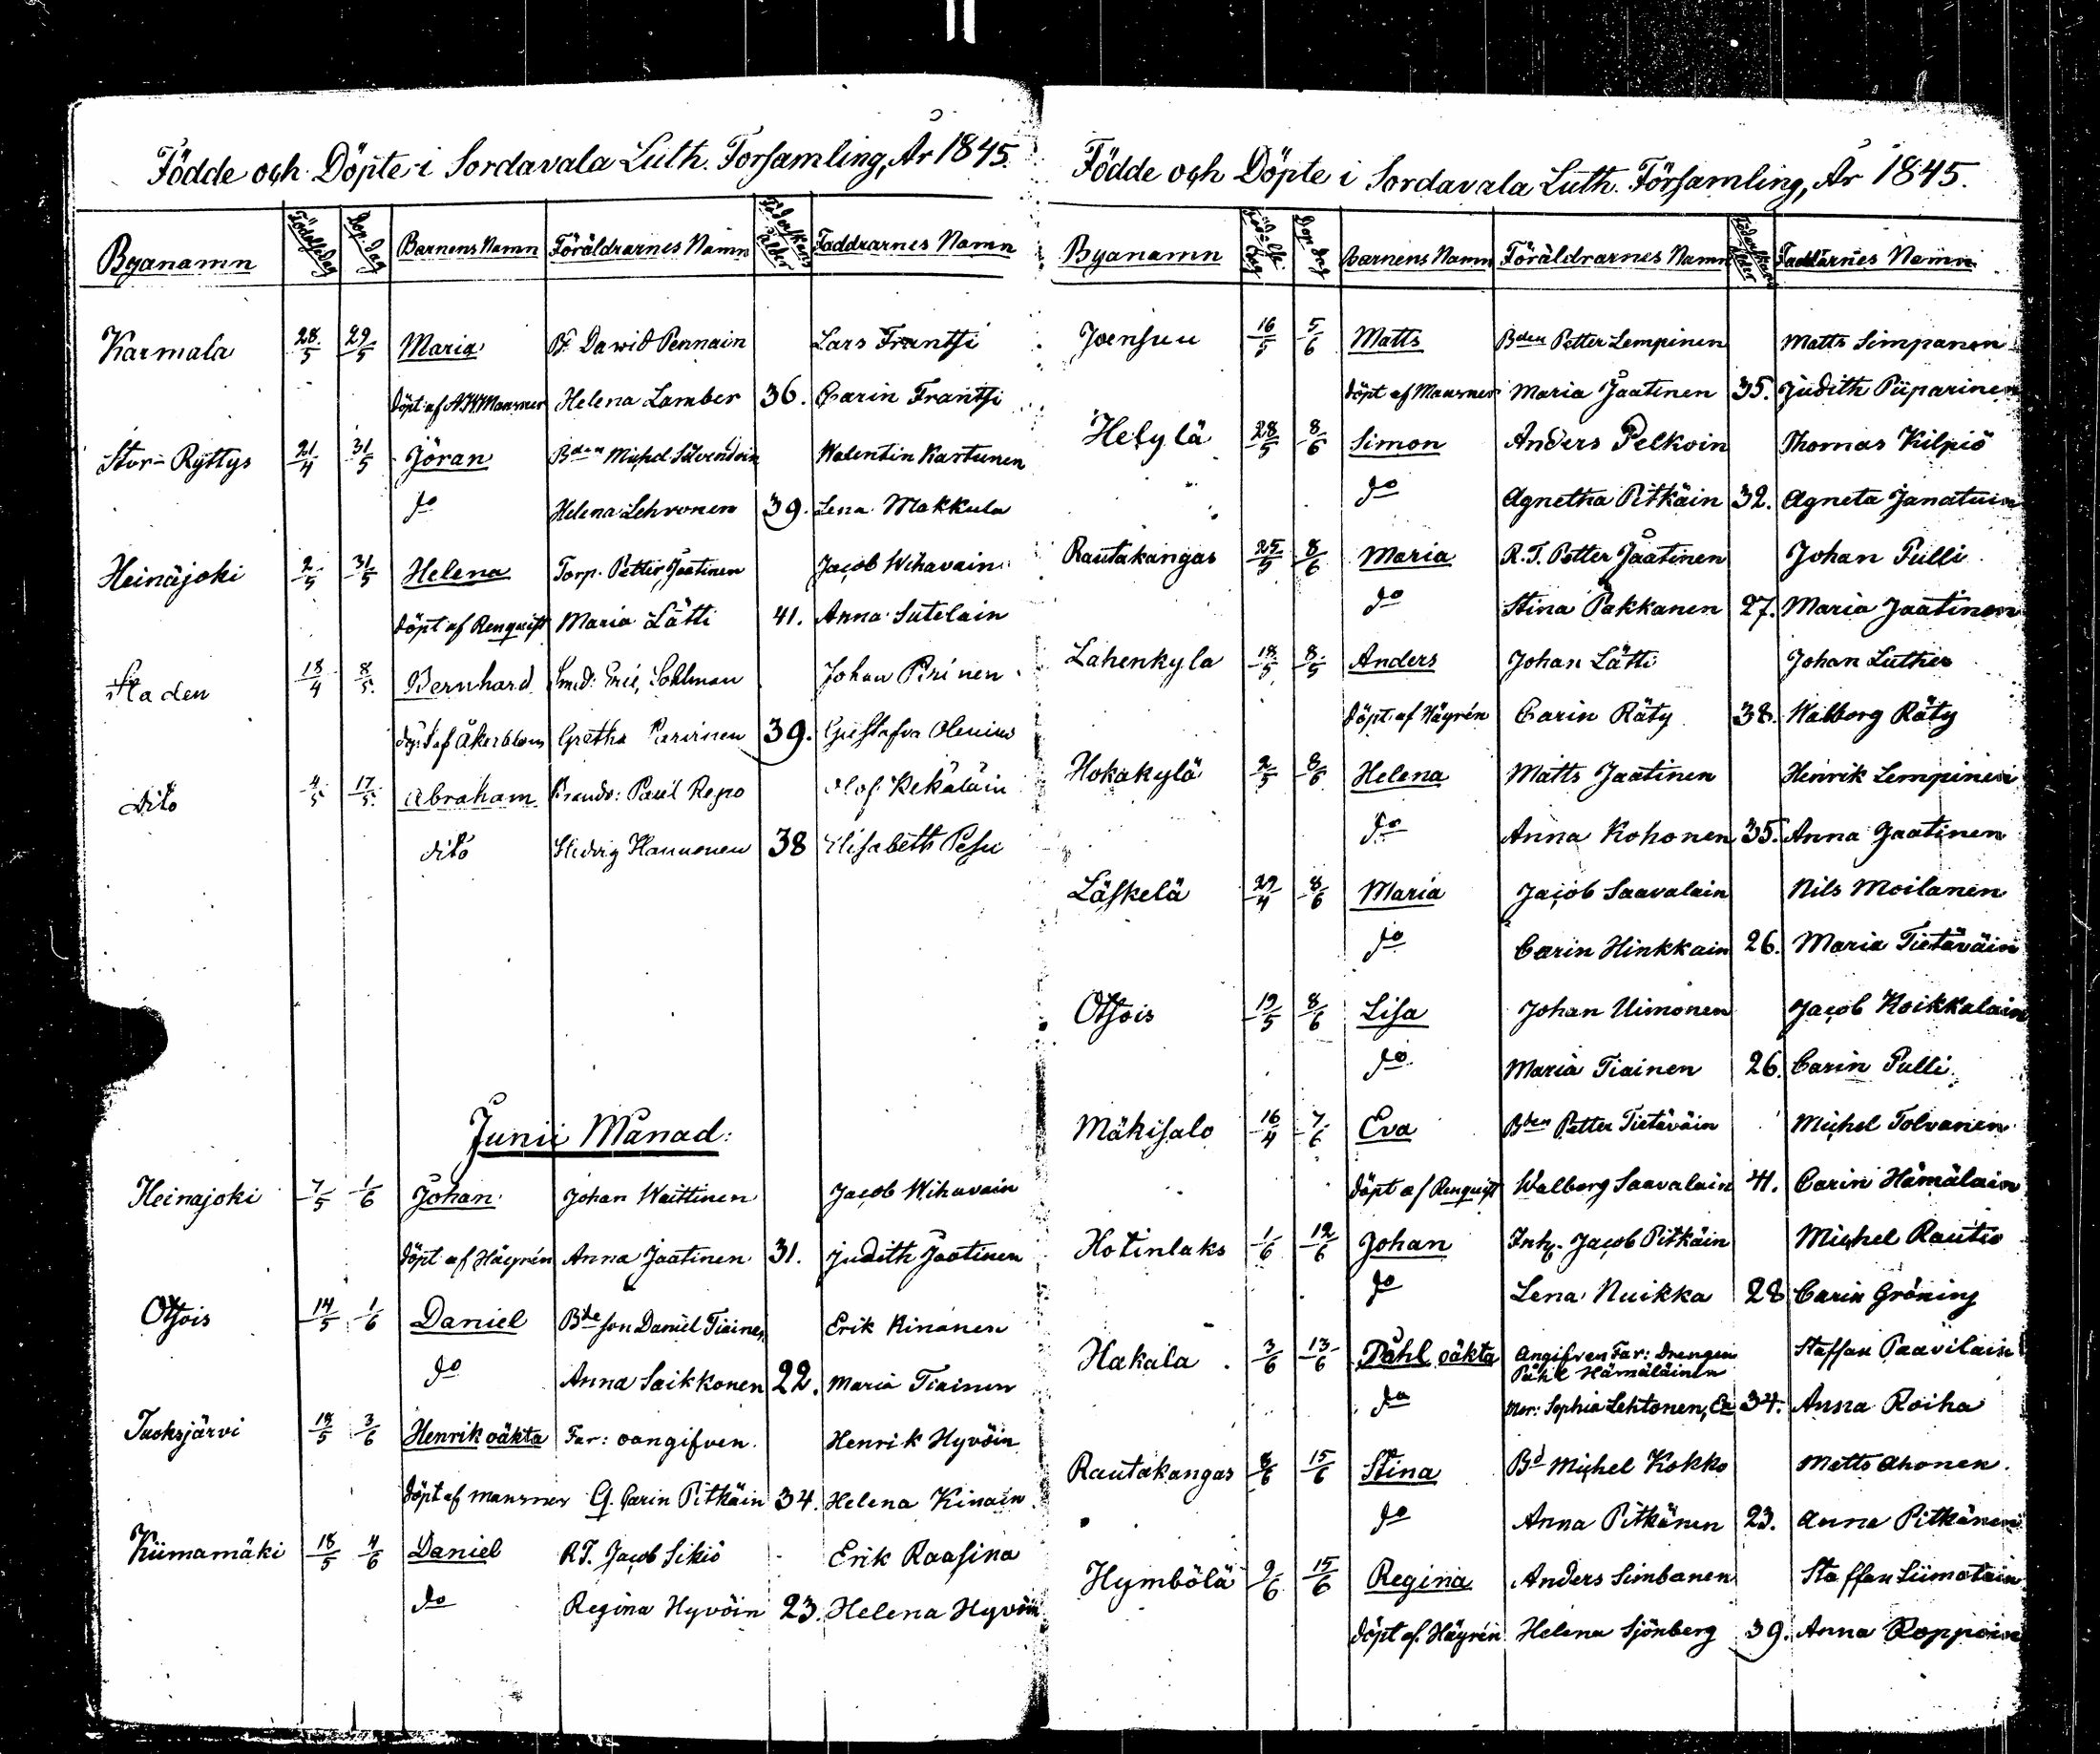 Födde och Döpte i Sordavala Luth. Forsamling, År 1845.
Byanamn Födelsedag Dop. Dag Barnens Namn Föräldrarnes Namn Föderskans ålder Faddrarnes Namn
Karmala 28/5 29/5 Maria Bd. Dawid Pennain Lars Frantsi
döpt af Mansner Helena Lamber 36. Carin Frantsi
Stor-Ryttys 21/4 31/5 Jöran Bden Michel Walentin Kartunen
do Helena Lehvonen 39. Lena Makkula
Heinäjoki 2/5 31/5 Helena Torp. Petter Jaatinen Jacob Wihavain
döpt af Renquist Maria Lätti 41. Anna Sutelain
Staden 18/4 8/5. Bernhard Smed: Eric Sohlman Johan Pirinen
döpt af Åkerblom Gretha Parinen 39. Gustafva Alenius
dito 4/5 17/5. Abraham Brandv: Paul Repo Olof Kekäläin
dito Hedvig Hannonen 38 Elisabeth Pesu
Junii Månad:
Heinajoki 7/5 1/6 Johan Johan Waittinen Jacob Wihavain
döpt af Häyrén Anna Jaatinen 31. Judith Jaatinen
Otsois 14/5 1/6 Daniel Bde son Daniel Tiainen Erik Ninonen
do Anna Saikkonen 22. Maria Tiainen
Tuoksjärvi 19/5 3/6 Henrik oäkta Far: oangifven. Henrik Hyvöin
döpt af Mansner Q. Carin Pitkäin 34. Helena Kinain
Kiimamäki 18/5 4/6 Daniel R.T. Jacob Sikiö Erik Raasina
do Regina Hyvöin 23. Helena Hyvöin
Födde och Döpte i Sordavala Luth. Församling, År 1845.
Byanamn Födelse Dag Dop Dag Barnens Namn Föräldrarnes Namn Föderskans ålder Faddrarnes Namn
Joensuu 16/5 5/6 Matts Bden Petter Lempinen Matts Simpanen
döpt af Mansner Maria Jaatinen 35. Judith Piiparinen
Helylä 28/5 8/6 Simon Anders Pelkoin Thomas Kilpiö
do Agnetha Pitkäin 32. Agneta Janatuin
Rautakangas 25/5 8/6 Maria R.T. Petter Jaatinen Johan Pulli
do Stina Pakkanen 27. Maria Jaatinen
Lahenkyla 18/5 8/5 Anders Johan Lätti Johan Luther
döpt af Häyrén Carin Räty 38. Walborg Räty
Hokakylä 2/5 8/6 Helena Matts Jaatinen Henrik Lempinen
do Anna Kohonen 35. Anna Jaatinen
Läskelä 29/4 8/6 Maria Jacob Saavalain Nils Moilanen
do Carin Hinkkain 26. Maria Tietäväin
Otsois 19/5 8/6 Lisa Johan Uimonen Jacob Koikkalain
do Maria Tiainen 26. Carin Pulli
Mäkisalo 16/4 7/6 Eva Bden Petter Tietäväin Michel Tolvanen
döpt af Renquist Walborg Saavalain 41. Carin Hämäläin
Hotinlaks 1/6 12/6 Johan Inh. Jacob Pitkäin Michel Rautio
do Lena Nuikka 28 Carin Gröning
Hakala 3/6 13/6 Påhl oäkta Angifven Far: Drengen
Påhl Hämäläinen Staffan Paavilain
do Mor: Sophia Lehtonen, 34. Anna Roiha
Rautakangas 8/6 15/6 Stina Bd Michel Kokko Matts Ahonen
do Anna Pitkänen 23. Anna Pitkänen
Hymbölä 9/6 15/6 Regina Anders Simbanen Staffan Siimotain
döpt af Häyrén Helena Sjönberg 39. Anna Roppoin